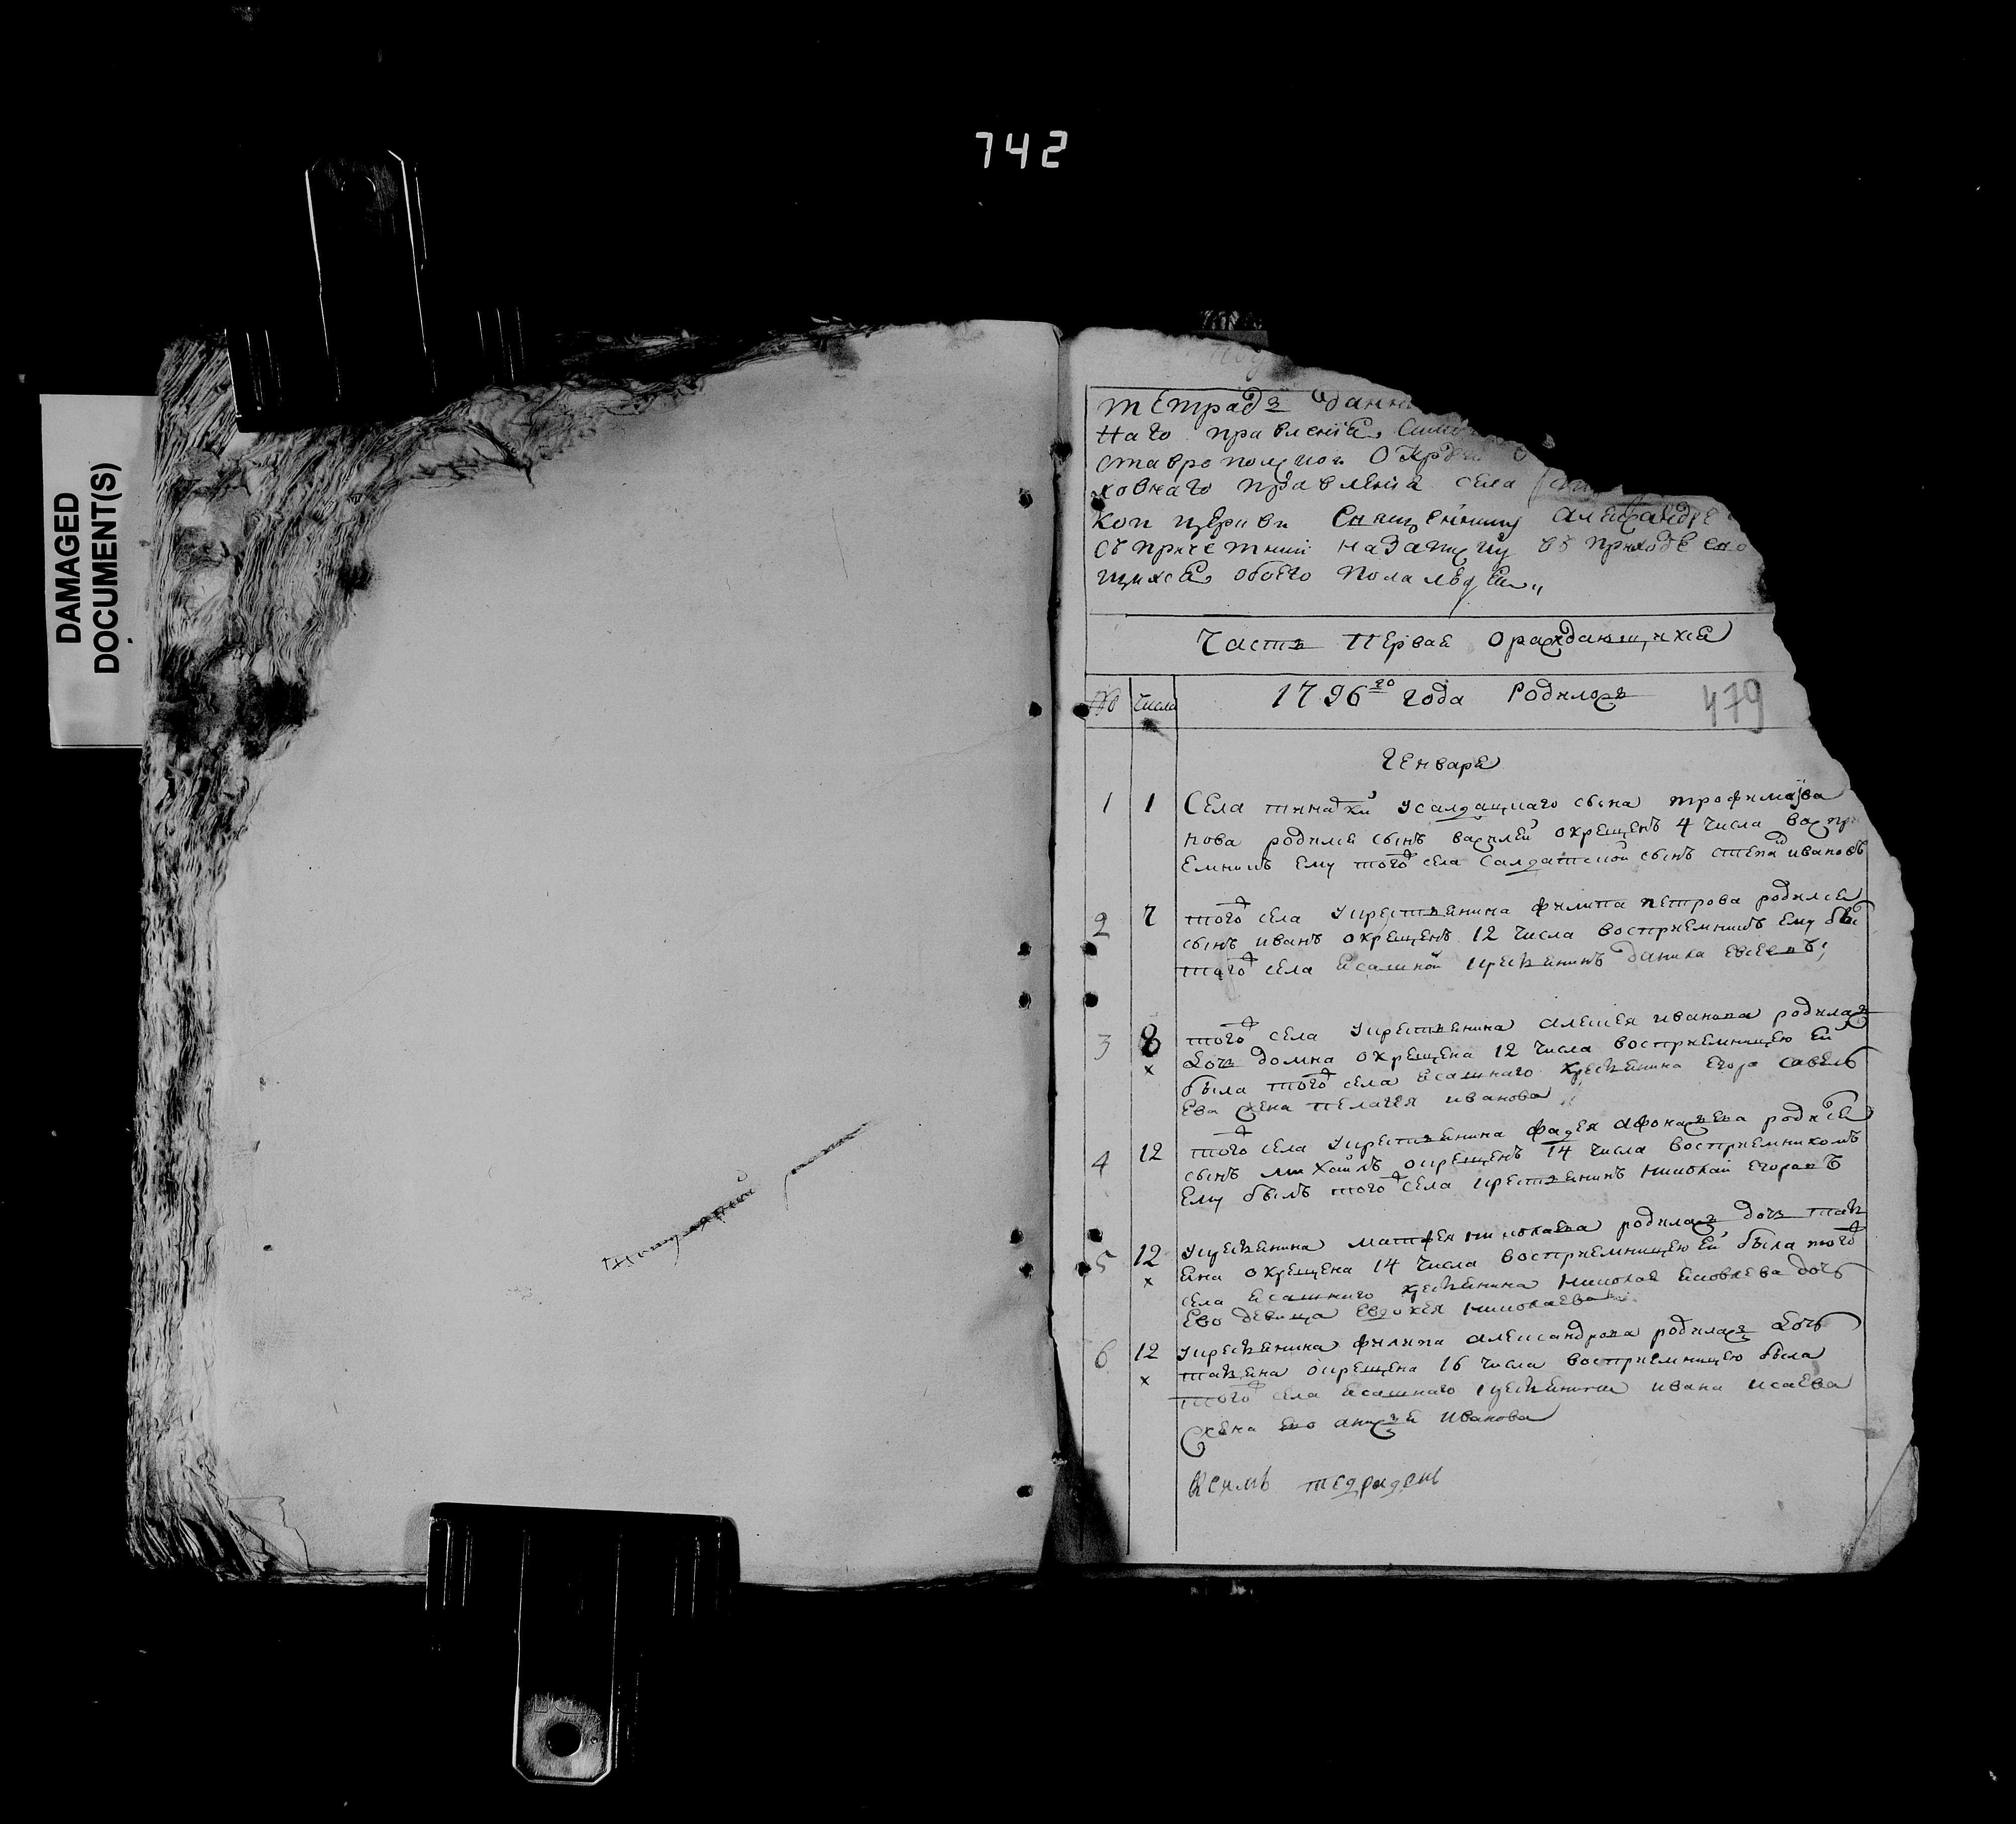 742
DAMAGED
DOCUMENT(S)
тетрадь данн
наго правления
ставропол
ховнаго правления села
кои церкви священнику александре
съ причетники на запи въ приходе
щихся обоего пола людеи
Часть первая о раждающихся
№ Числа 1796го года Родилось 479
Генваря
1 1 Села тинадки у салдацкаго сына трофима ива
нова родился сынъ василеи окрещенъ 4 числа воспри
емникъ ему тогож села салдатской сынъ степа ивановъ
2 7 тогож села у крестьянина филипа петрова родился
сынъ иванъ окрещенъ 12 числа восприемникъ ему был
тогож села ясашной кресьянинъ данила евсеевъ
3 8 тогож села у крестьянина алексея иванова родилась
дочь домна окрещена 12 числа восприемницею ей
х была тогож села ясашнаго кресьянина егора савель
ева жена пелагея иванова
4 12 тогож села у крестьянина фадея афонасьева родился
сынъ михайлъ окрещенъ 14 числа восприемникомъ
ему былъ тогож села крестьянинъ николай егоровъ
5 12 у кресьянина матфея николаева родилась дочь тать
х яна окрещена 14 числа восприемницею ей была тогож
села ясашнаго кресьянина николая яковлева дочь
ево девица евдокея николаева
6 12 у кресьянина филипа александрова родилась дочь
х татьяна окрещена 16 числа восприемницею была
тогож села ясашнаго кресьянина ивана исаева
жена ево анисья иванова